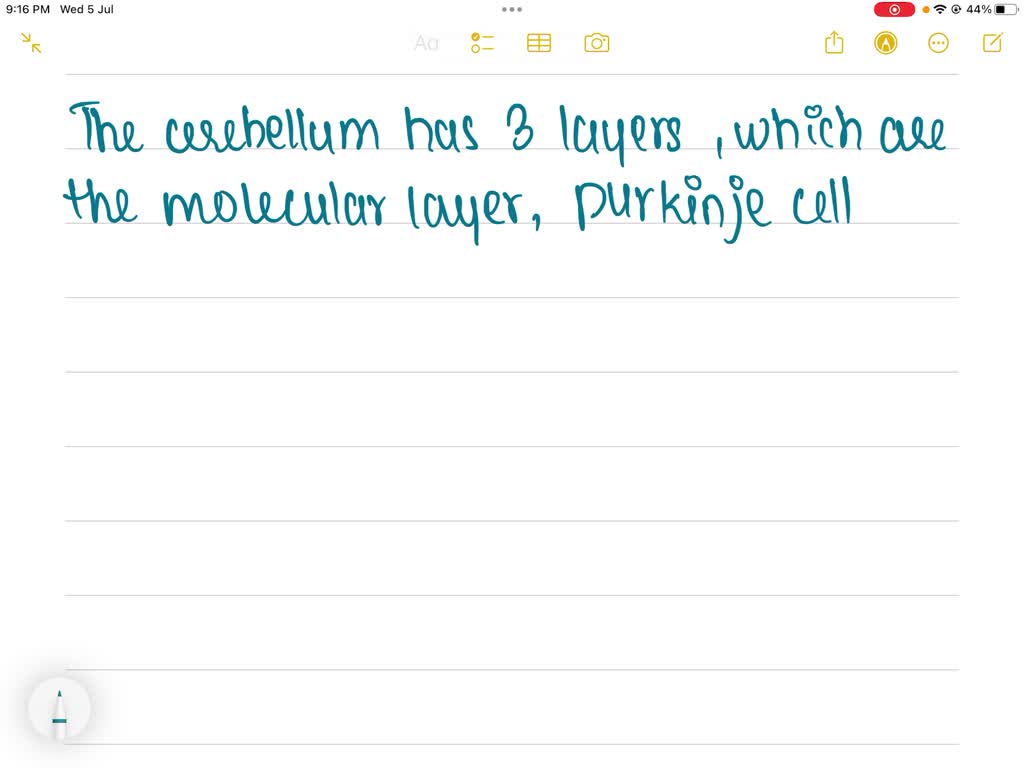 9:16 PM Wed 5 Jul 44%
Aa
The cerebellum has 3 layers , which are
the molecular layer, purkinje cell